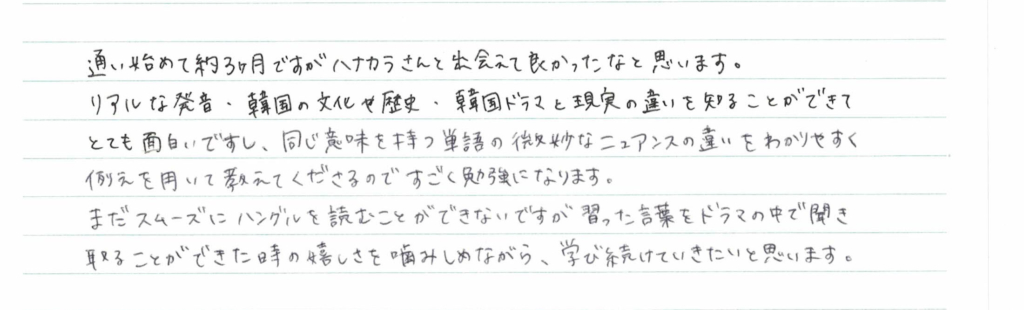 通い始めて約3ヶ月ですがハナカラさんと出会えて良かったなと思います。
リアルな発音・韓国の文化や歴史・韓国ドラマと現実の違いを知ることができて
とても面白いですし、同じ意味を持つ単語の微妙なニュアンスの違いをわかりやすく
例えを用いて教えてくださるのですごく勉強になります。
まだスムーズにハングルを読むことができないですが習った言葉をドラマの中で聞き
取ることができた時の嬉しさを噛みしめながら、学び続けていきたいと思います。